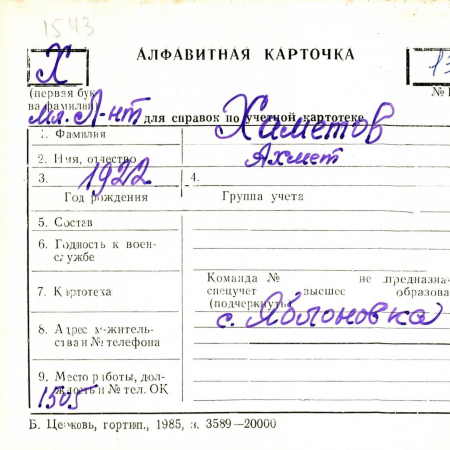 1543
АЛФАВИТНАЯ КАРТОЧКА
Х
13
(первая бук
ва фамилии
№
Мл. Л-нт для справок по учетной картотеке
1. Фамилия Хаметов
2. Имя, отчество Ахмет
3. 1922 4.
Год рождения Группа учета
5. Состав
6. Годность к воен-
службе
Команда № не предназна
7. Картотека спецучет высшее образова
(подчеркнуть)
с. Яблоновка
8. Адрес м-жительс-
тва и № телефона
9. Место работы, дол-
жность и № тел. ОК
1505
Б. Церковь, гортип., 1985, з. 3589—20000